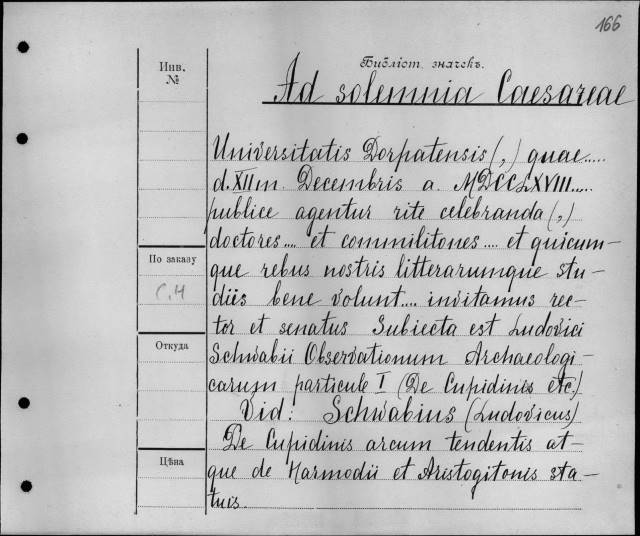 166
Библіот. значекъ.
Инв.
№
Ad solemnia Caesareae
Universitatis Dorpatensis (,) quae.....
d. XII m. Decembris a. MDCCLXVIII.....
publice agentur rite celebranda (,)
doctores.... et commilitones.... et quicum-
que rebus nostris litterarumque stu-
diis bene volunt.... invitamus rec-
tor et senatus Subiecta est Ludovici
Schwabii Observationum Archaeologi-
carum particule I (De Cupidinis etc.)
Vid: Schwabius (Ludovicus)
De Cupidinis arcum tendentis at-
que de Harmodii et Aristogitonis sta-
tuis.
По заказу
С.Н
Откуда
Цѣна